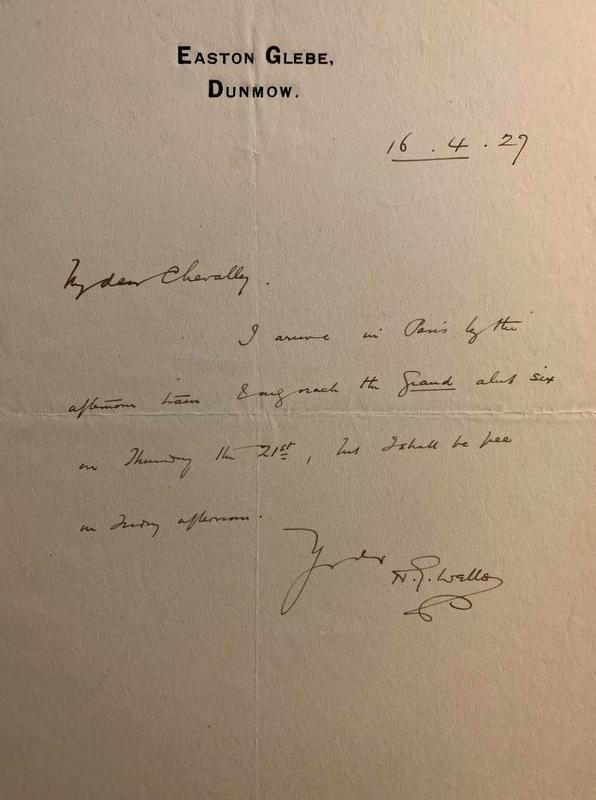 EASTON GLEBE,
DUNMOW.
16.4.27
My dear Chevalley.
I arrive in Paris by the
afternoon train & reach the Grand about six
on Thursday the 21st, but I shall be free
on Friday afternoon.
H.G. Wells